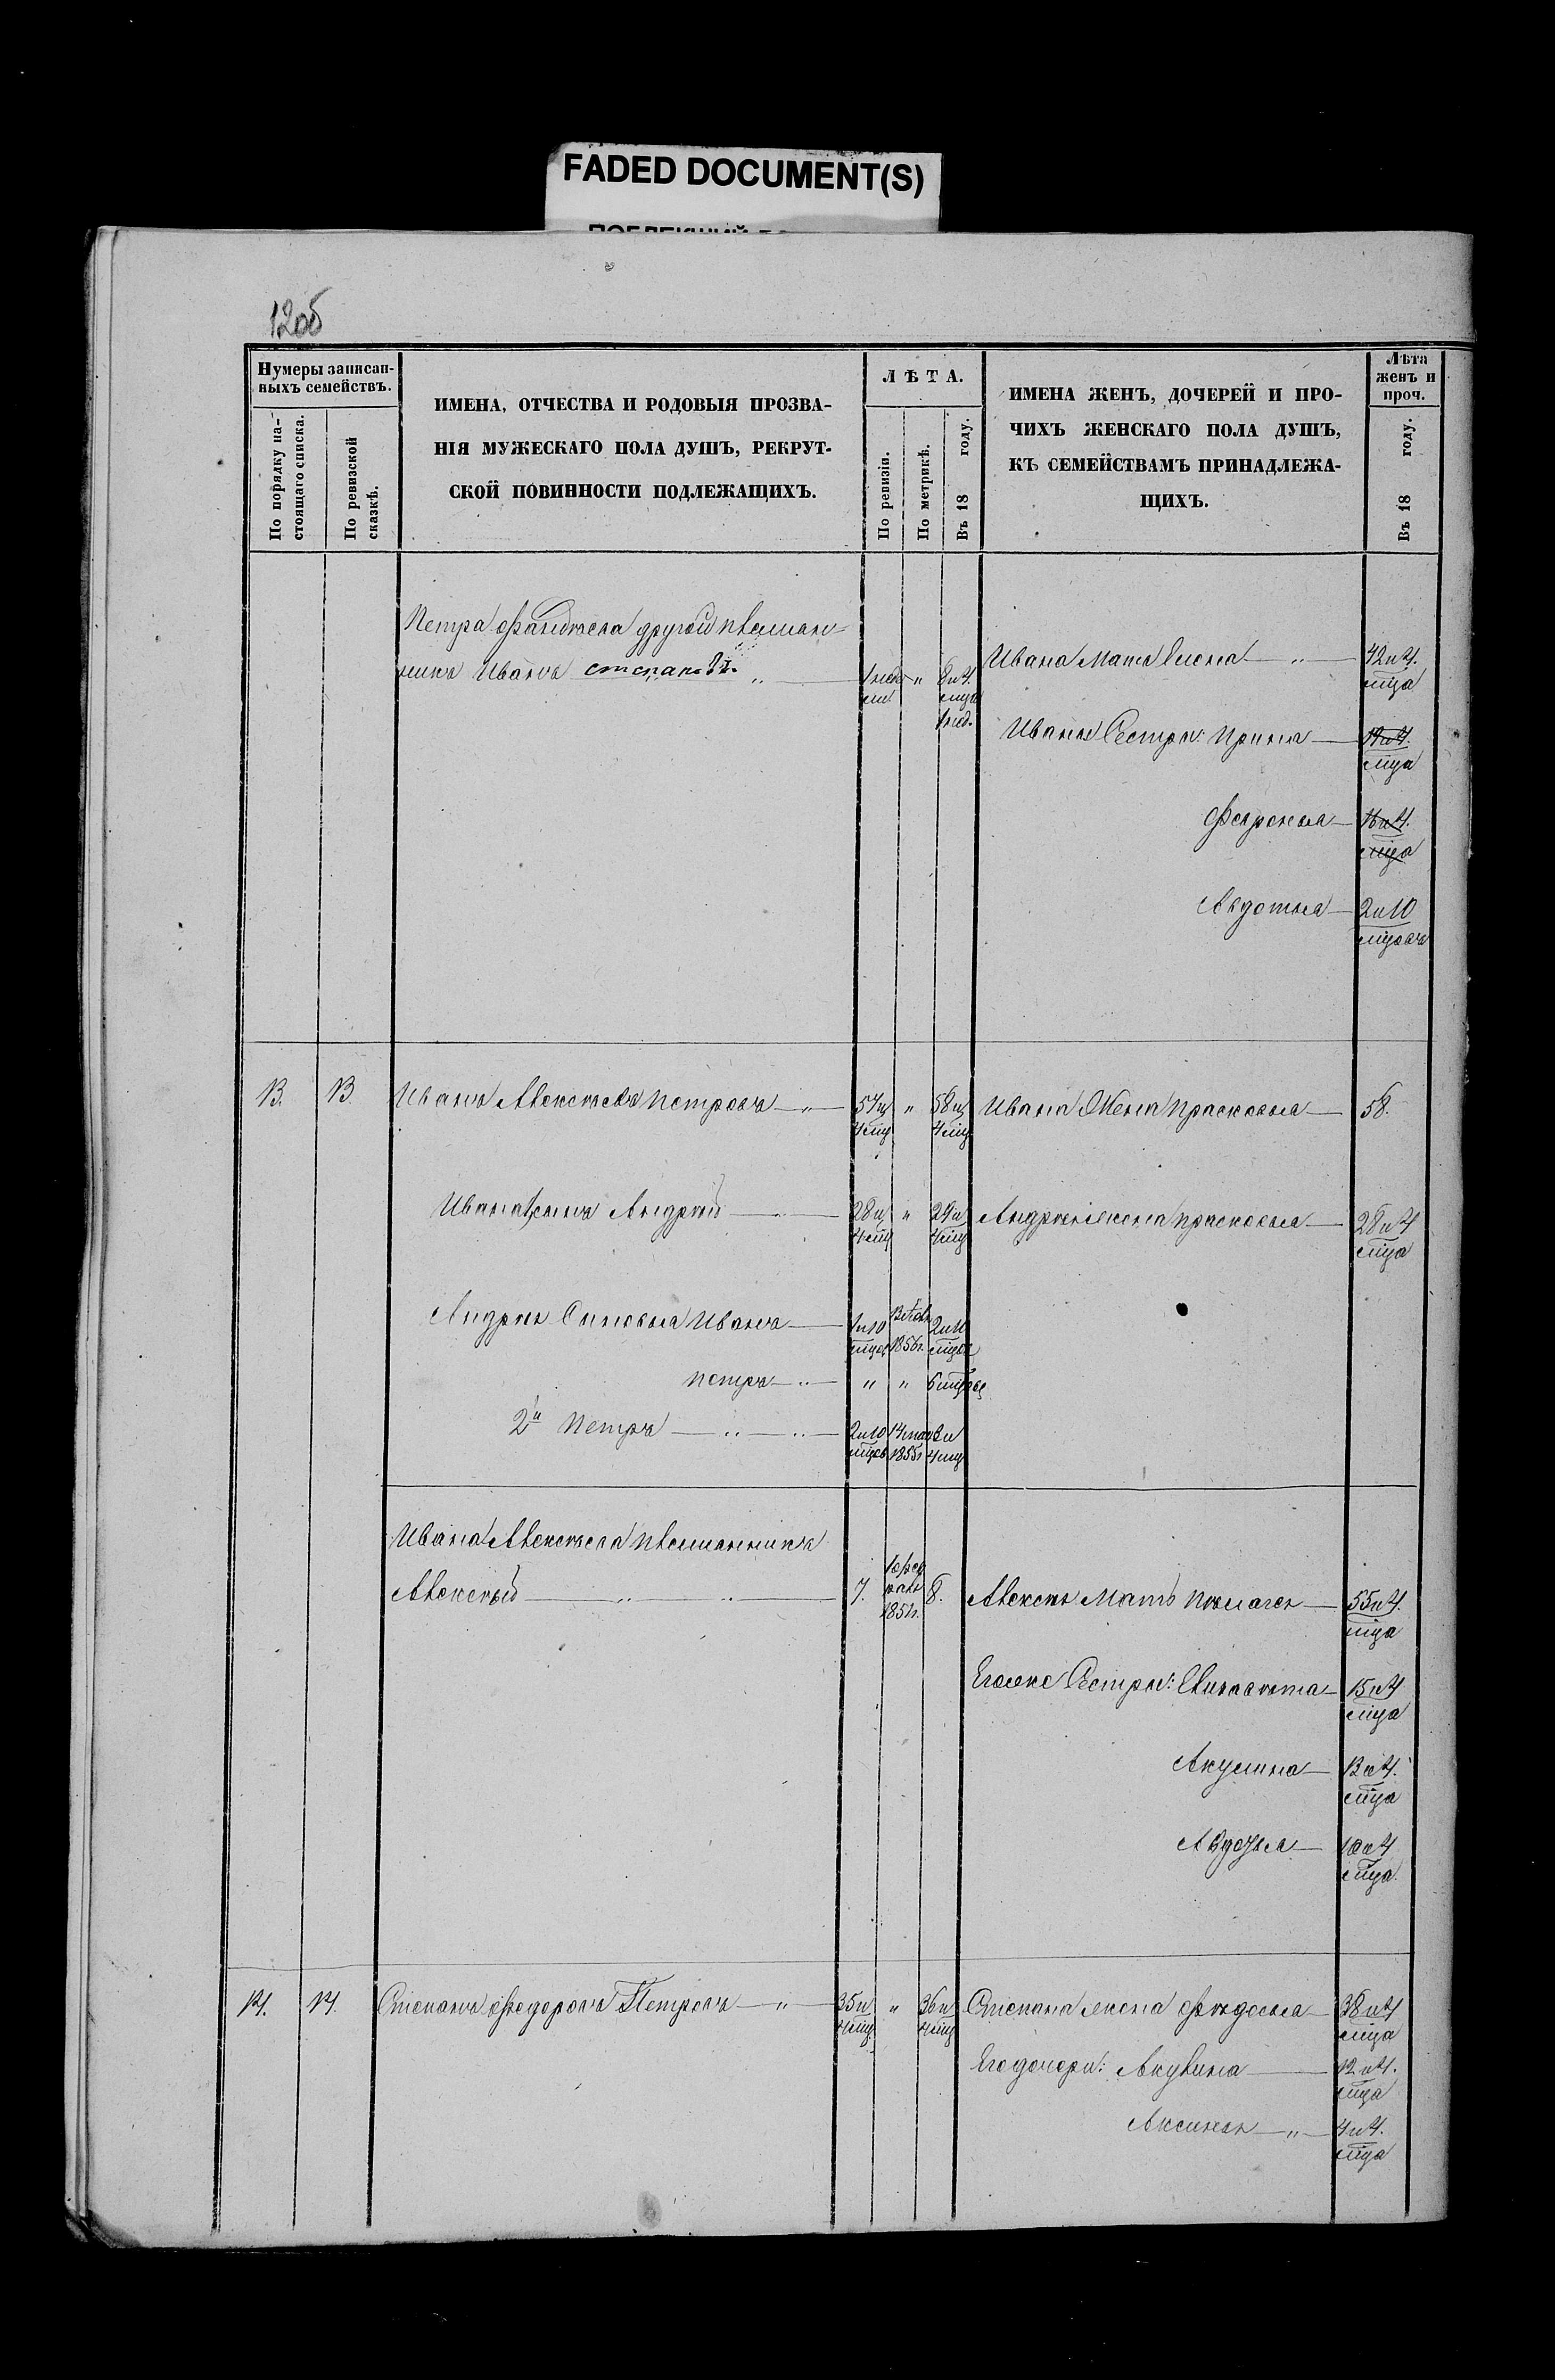 FADED DOCUMENT(S)
12об
Нумеры записан-
ныхъ семействъ.
По порядку на-
стоящаго списка.
По ревизской
сказкѣ.
ИМЕНА, ОТЧЕСТВА И РОДОВЫЯ ПРОЗВА-
НІЯ МУЖЕСКАГО ПОЛА ДУШЪ, РЕКРУТ-
СКОЙ ПОВИННОСТИ ПОДЛЕЖАЩИХЪ.
ЛѢТА.
По ревизіи.
По метрикѣ.
Въ 18 году.
ИМЕНА ЖЕНЪ, ДОЧЕРЕЙ И ПРО-
ЧИХЪ ЖЕНСКАГО ПОЛА ДУШЪ,
КЪ СЕМЕЙСТВАМЪ ПРИНАДЛЕЖА-
ЩИХЪ.
Лѣта
женъ и
проч.
Въ 18 году.
Петра другой племян-
никъ Иванъ степановъ "
Ивана Мать Елена " 42 и 4.
мца
Ивана Сестры: Ирина 19 и 4.
мца
Февронья 16 и 4.
мца
Авдотья 2 и 10
мцовъ
13. 13 Иванъ Алексѣевъ Петровъ " 57 и " 58 и Ивана Жена Прасковья 58.
4 мц 4 мц
Ивана сынъ Андрей 28 и " 29 и Андрея жена Прасковья 28 и 4
4 мц 4 мц мца
Андрея Сыновья Иванъ 1 и 10 2 и 10
мцов 1856г. мцов
Петръ " " " 6 мцовъ
2й Петръ " " 2 и 10 14 мая 3 и
мцов 1855г 4 мц
Ивана Алексѣева племянникъ
Алексѣй " " 7. 1 февраля 1851г. 8. Алексѣя Мать Пелагея 55 и 4.
мца
Его же Сестры: Елизавета 15 и 4
мца
Акулина 13 и 4.
мца
Авдотья 10 и 4
мца
14. 14. Степанъ Федоровъ Петровъ " 35 и " 36 и Степана жена Федосья 38 и 4
4 мц 4 мц мца
Его дочери: Акулина 12 и 4.
мца
Аксинья " 4 и 4.
мца